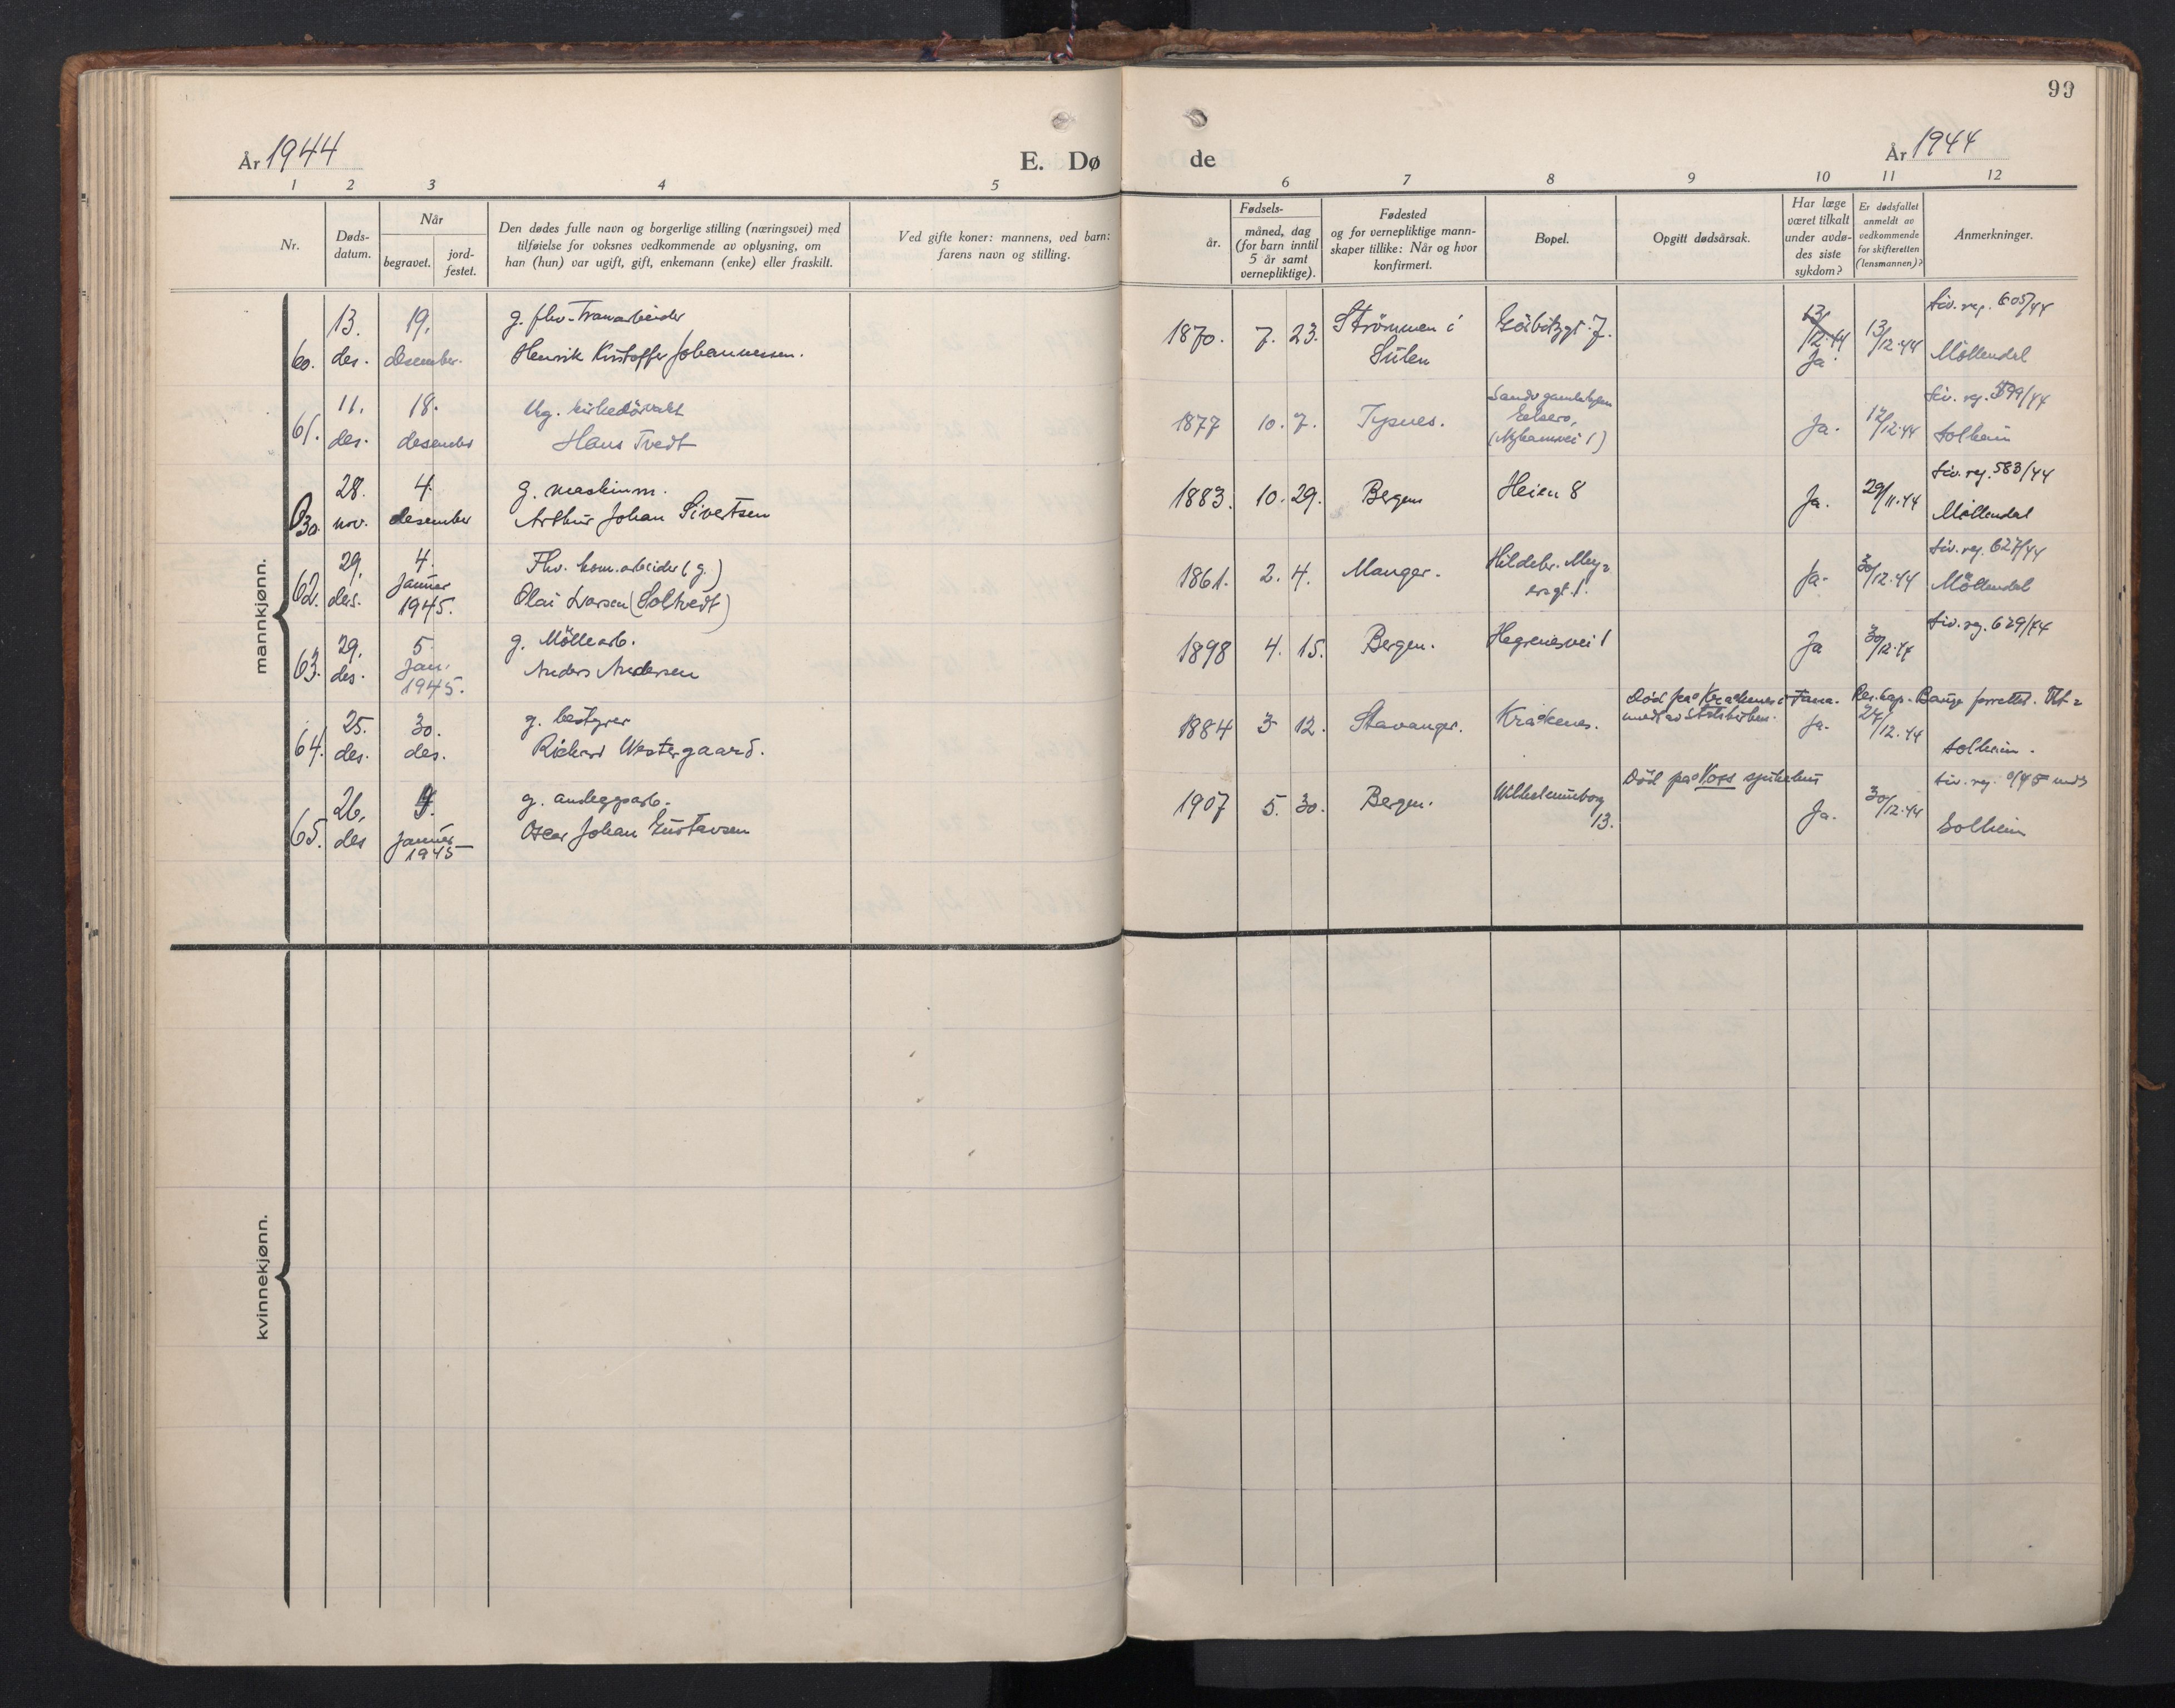 99
År 1944
E. Dø de
År 1944
1 2 3 4 5 6 7 8 9 10 11 12
Nr.
Døds-
datum.
Når
begravet.
jord-
festet.
Den dødes fulle navn og borgerlige stilling (næringsvei) med
tilføielse for voksnes vedkommende av oplysning, om
han (hun) var ugift, gift, enkemann (enke) eller fraskilt.
Ved gifte koner: mannens, ved barn:
farens navn og stilling.
Fødsels-
år.
måned, dag
(for barn inntil
5 år samt
vernepliktige).
Fødested
og for vernepliktige mann-
skaper tillike: Når og hvor
konfirmert.
Bopel.
Opgitt dødsårsak.
Har læge
været tilkalt
under avdø-
des siste
sykdom?
Er dødsfallet
anmeldt av
vedkommende
for skifteretten
(lensmannen)?
Anmerkninger.
mannkjønn.
60.
13.
des.
19.
desember.
g. fhv. Tranarbeider
Henrik Kristoffer Johannessen.
1870. 7. 23.
Strömmen i
Sulen
7.
13/12.44
Ja.
13/12.44
Liv. reg. 605/44
Möllendal
61.
11.
des.
18.
desember
Ug. kirkedörvakt
Hans Tvedt
1877 10. 7.
Ja.
12/12.44
Liv. reg. 599/44
Solheim
30.
28.
nov.
4.
desember
g. maskinm.
Arthur Johan Sivertsen
1883. 10. 29.
Bergen
Heien 8
Ja.
29/11.44
Liv. reg. 583/44
Möllendal
62.
29.
des.
4.
Januar
1945.
Fhv. kom. arbeider (g.)
Olai Larsen (Soltvedt)
1861. 2. 4.
Manger.
Hildebr. Mey=
ersgt. 1.
Ja.
30/12.44
Liv. reg. 627/44
Möllendal
63.
29.
des.
5.
Jan.
1945.
g. Möllearb.
Anders Andersen
1898 4. 15.
Bergen.
Hegrenesvei 1
Ja
30/12.44
Liv. reg. 629/44
64.
25.
des.
30.
des.
g. bestyrer
Richard Westergaard.
1884 3 12.
Stavanger.
Kråkenes.
Död på Kråkenes i Fana. Res. kap. Bauge forrettet. Ut=
Ja.
27/12.44
Solheim.
65.
26.
des
Januar
1945
g. anleggsarb.
Oscar Johan Gustavsen
1907 5. 30.
Bergen.
Wilhelminborg
13.
Död på Voss sykehus
Ja.
30/12.44
Liv. reg.
Solheim
kvinnekjønn.